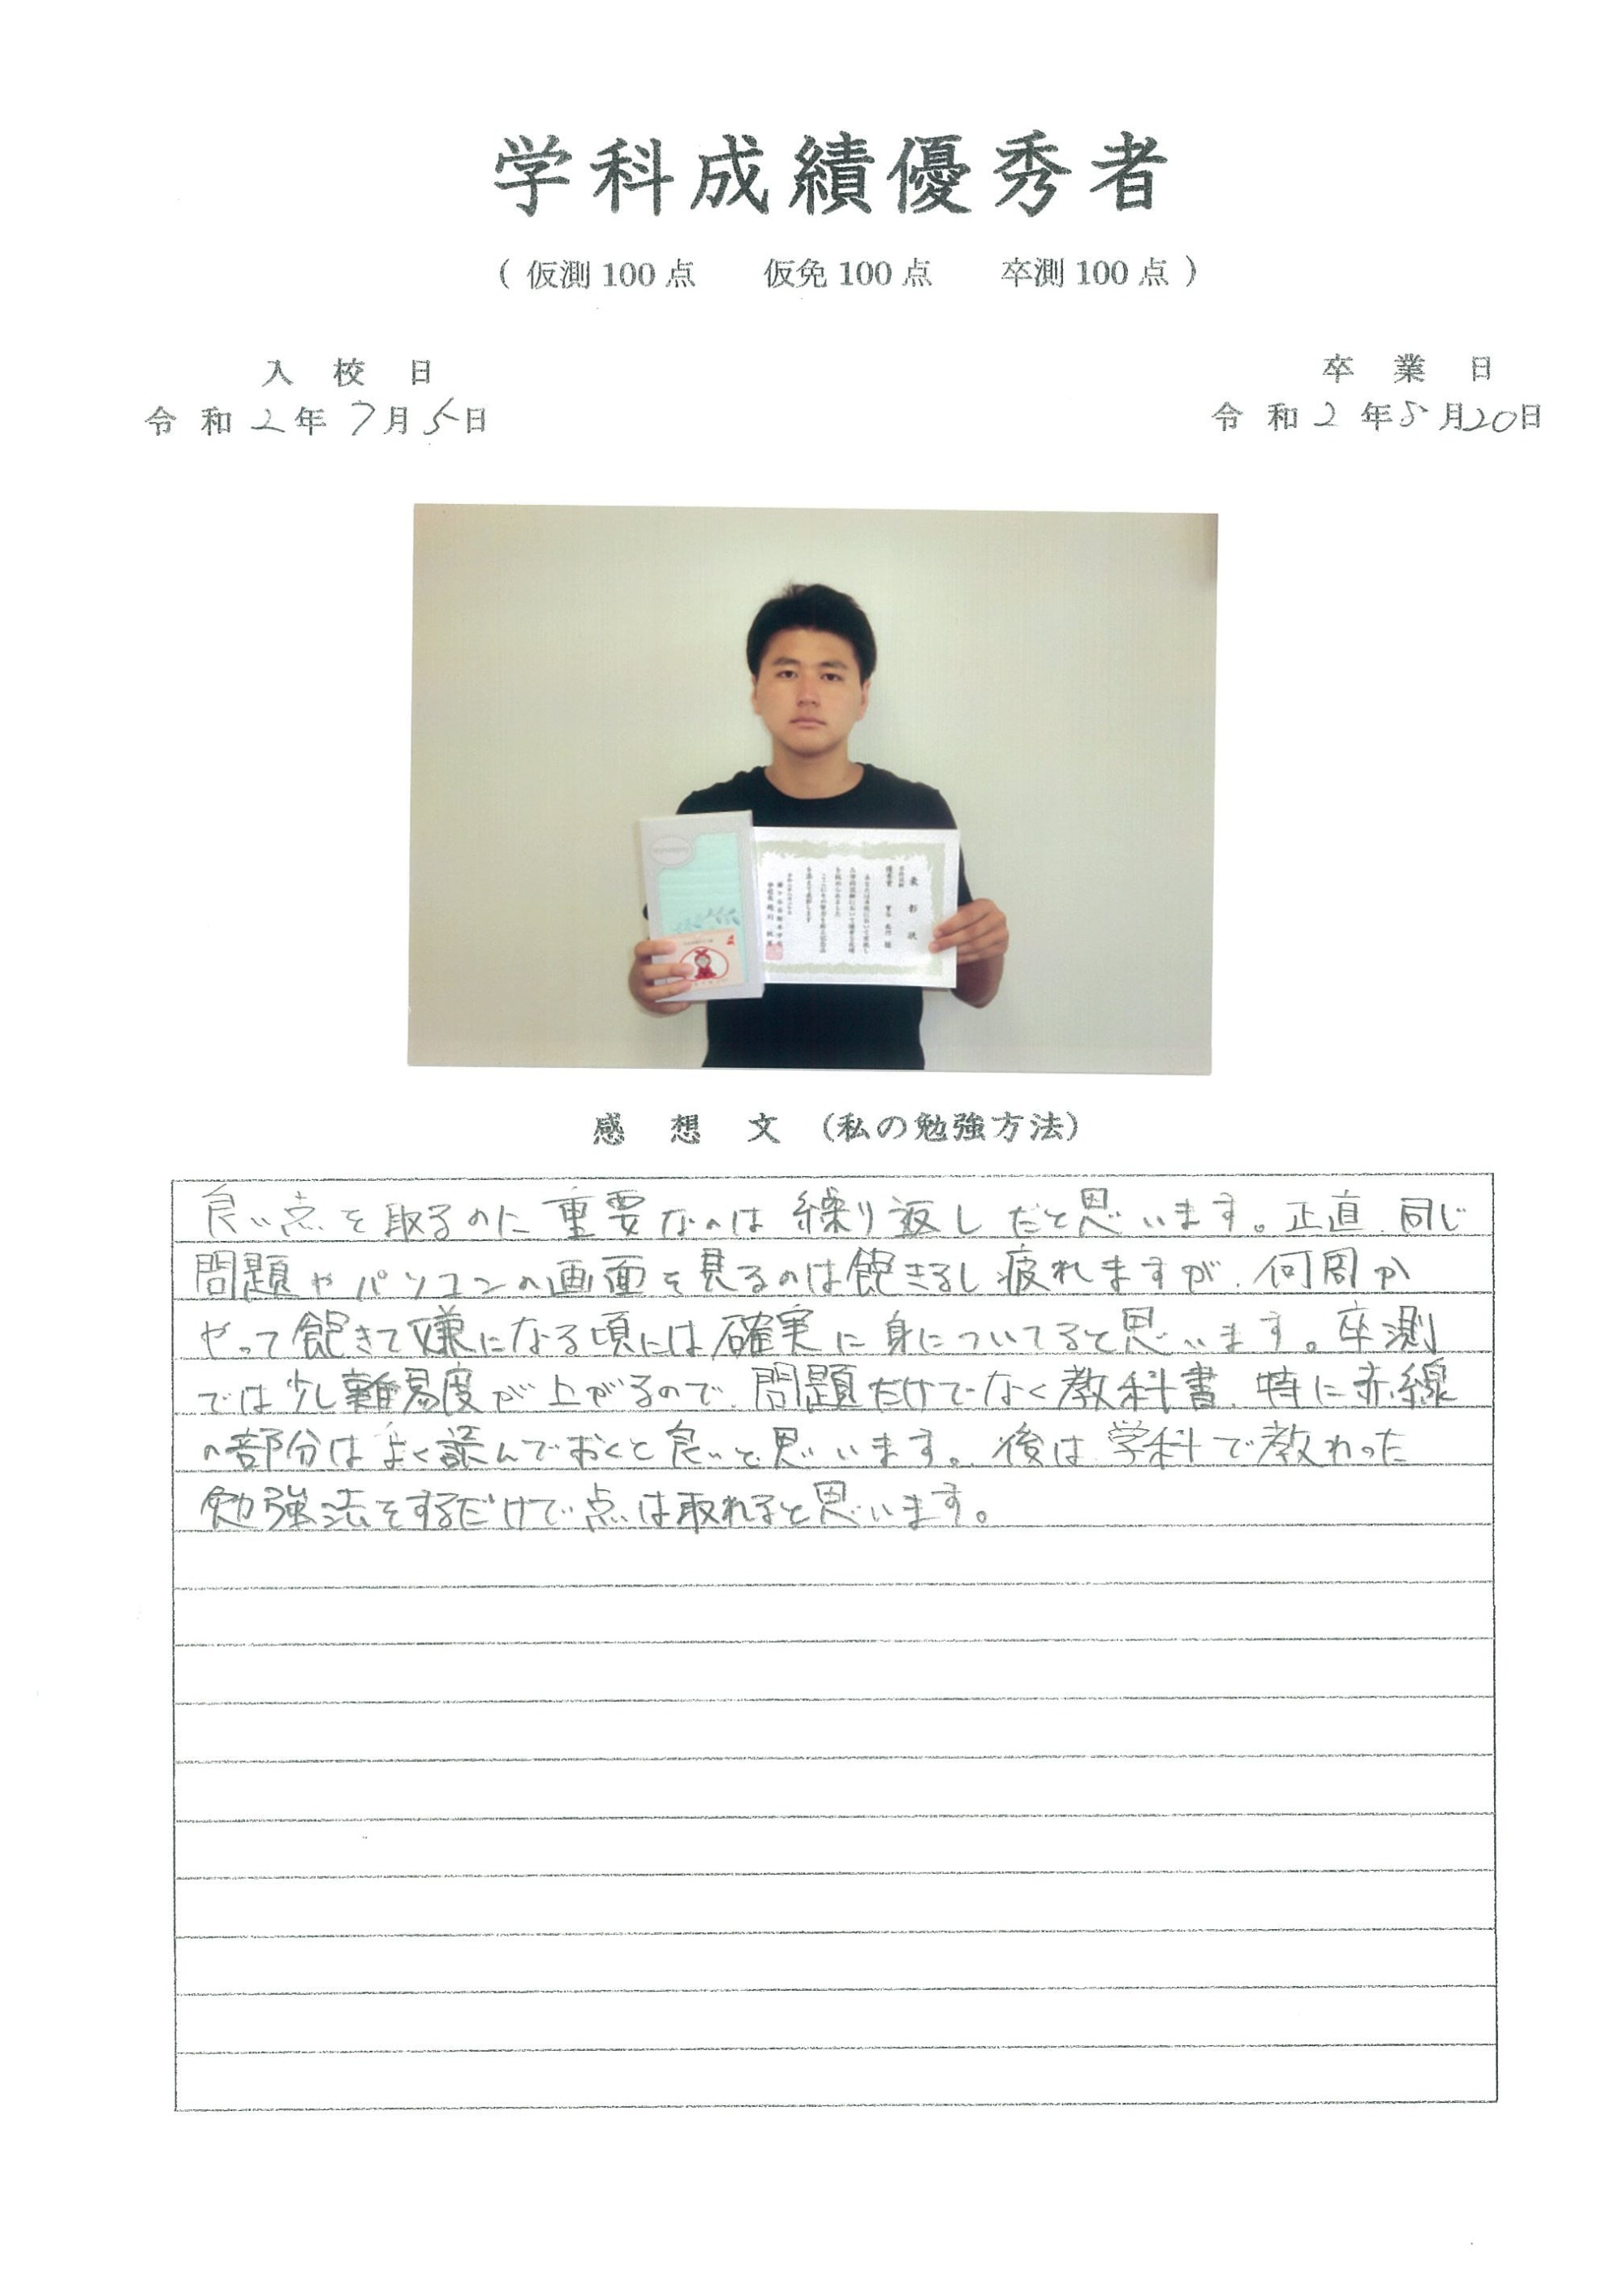 学科成績優秀者
( 仮測100点 仮免100点 卒測100点 )
入校日
令和2年7月5日
卒業日
令和2年8月20日
表彰状
感想文 (私の勉強方法)
良い点を取るのに重要なのは繰り返しだと思います。正直、同じ
問題やパソコンの画面を見るのは飽きるし疲れますが、何周か
やって飽きて嫌になる頃には確実に身についてると思います。卒測
では少し難易度が上がるので、問題だけでなく教科書、特に赤線
の部分はよく読んでおくと良いと思います。後は学科で教わった
勉強法をするだけで点は取れると思います。